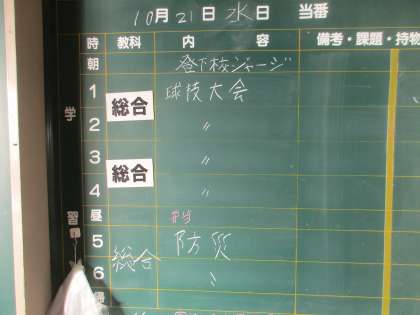 10月21日水日 当番
時 教科 内容 備考・課題・持物
朝 登下校ジャージ
1 総合 球技大会
2 〃
3 総合 〃
4 〃
昼 弁当
5 総合 防災
6 〃
学習